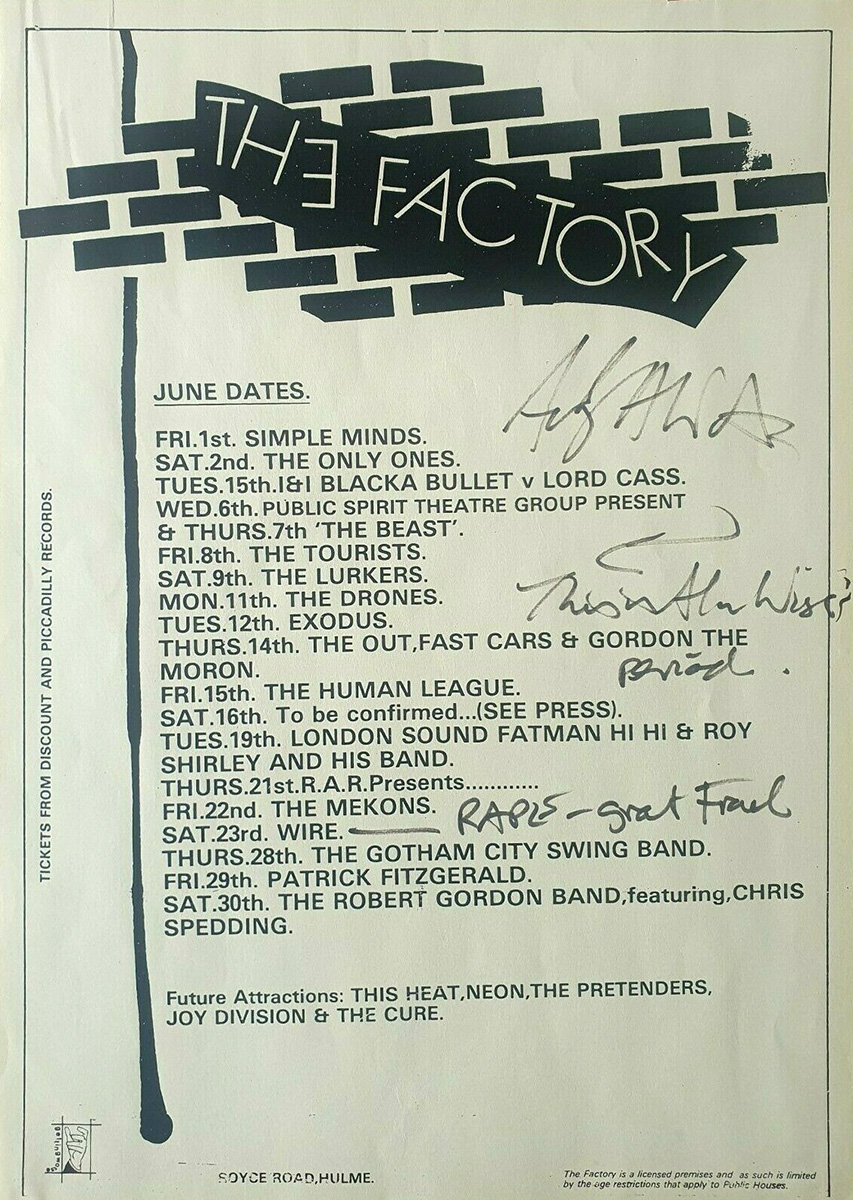 THE FACTORY
JUNE DATES.
FRI.1st. SIMPLE MINDS.
SAT.2nd. THE ONLY ONES.
TUES.15th.I&I BLACKA BULLET v LORD CASS.
WED.6th.PUBLIC SPIRIT THEATRE GROUP PRESENT
& THURS.7th 'THE BEAST'.
FRI.8th. THE TOURISTS.
SAT.9th. THE LURKERS.
MON.11th. THE DRONES.
TUES.12th. EXODUS.
THURS.14th. THE OUT,FAST CARS & GORDON THE
MORON.
period.
FRI.15th. THE HUMAN LEAGUE.
SAT.16th. To be confirmed...(SEE PRESS).
TUES.19th. LONDON SOUND FATMAN HI HI & ROY
SHIRLEY AND HIS BAND.
THURS.21st.R.A.R.Presents............
FRI.22nd. THE MEKONS.
SAT.23rd. WIRE.
THURS.28th. THE GOTHAM CITY SWING BAND.
FRI.29th. PATRICK FITZGERALD.
SAT.30th. THE ROBERT GORDON BAND,featuring,CHRIS
SPEDDING.
Future Attractions: THIS HEAT,NEON,THE PRETENDERS,
JOY DIVISION & THE CURE.
TICKETS FROM DISCOUNT AND PICCADILLY RECORDS.
ROYCE ROAD,HULME.
The Factory is a licensed premises and as such is limited
by the age restrictions that apply to Public Houses.